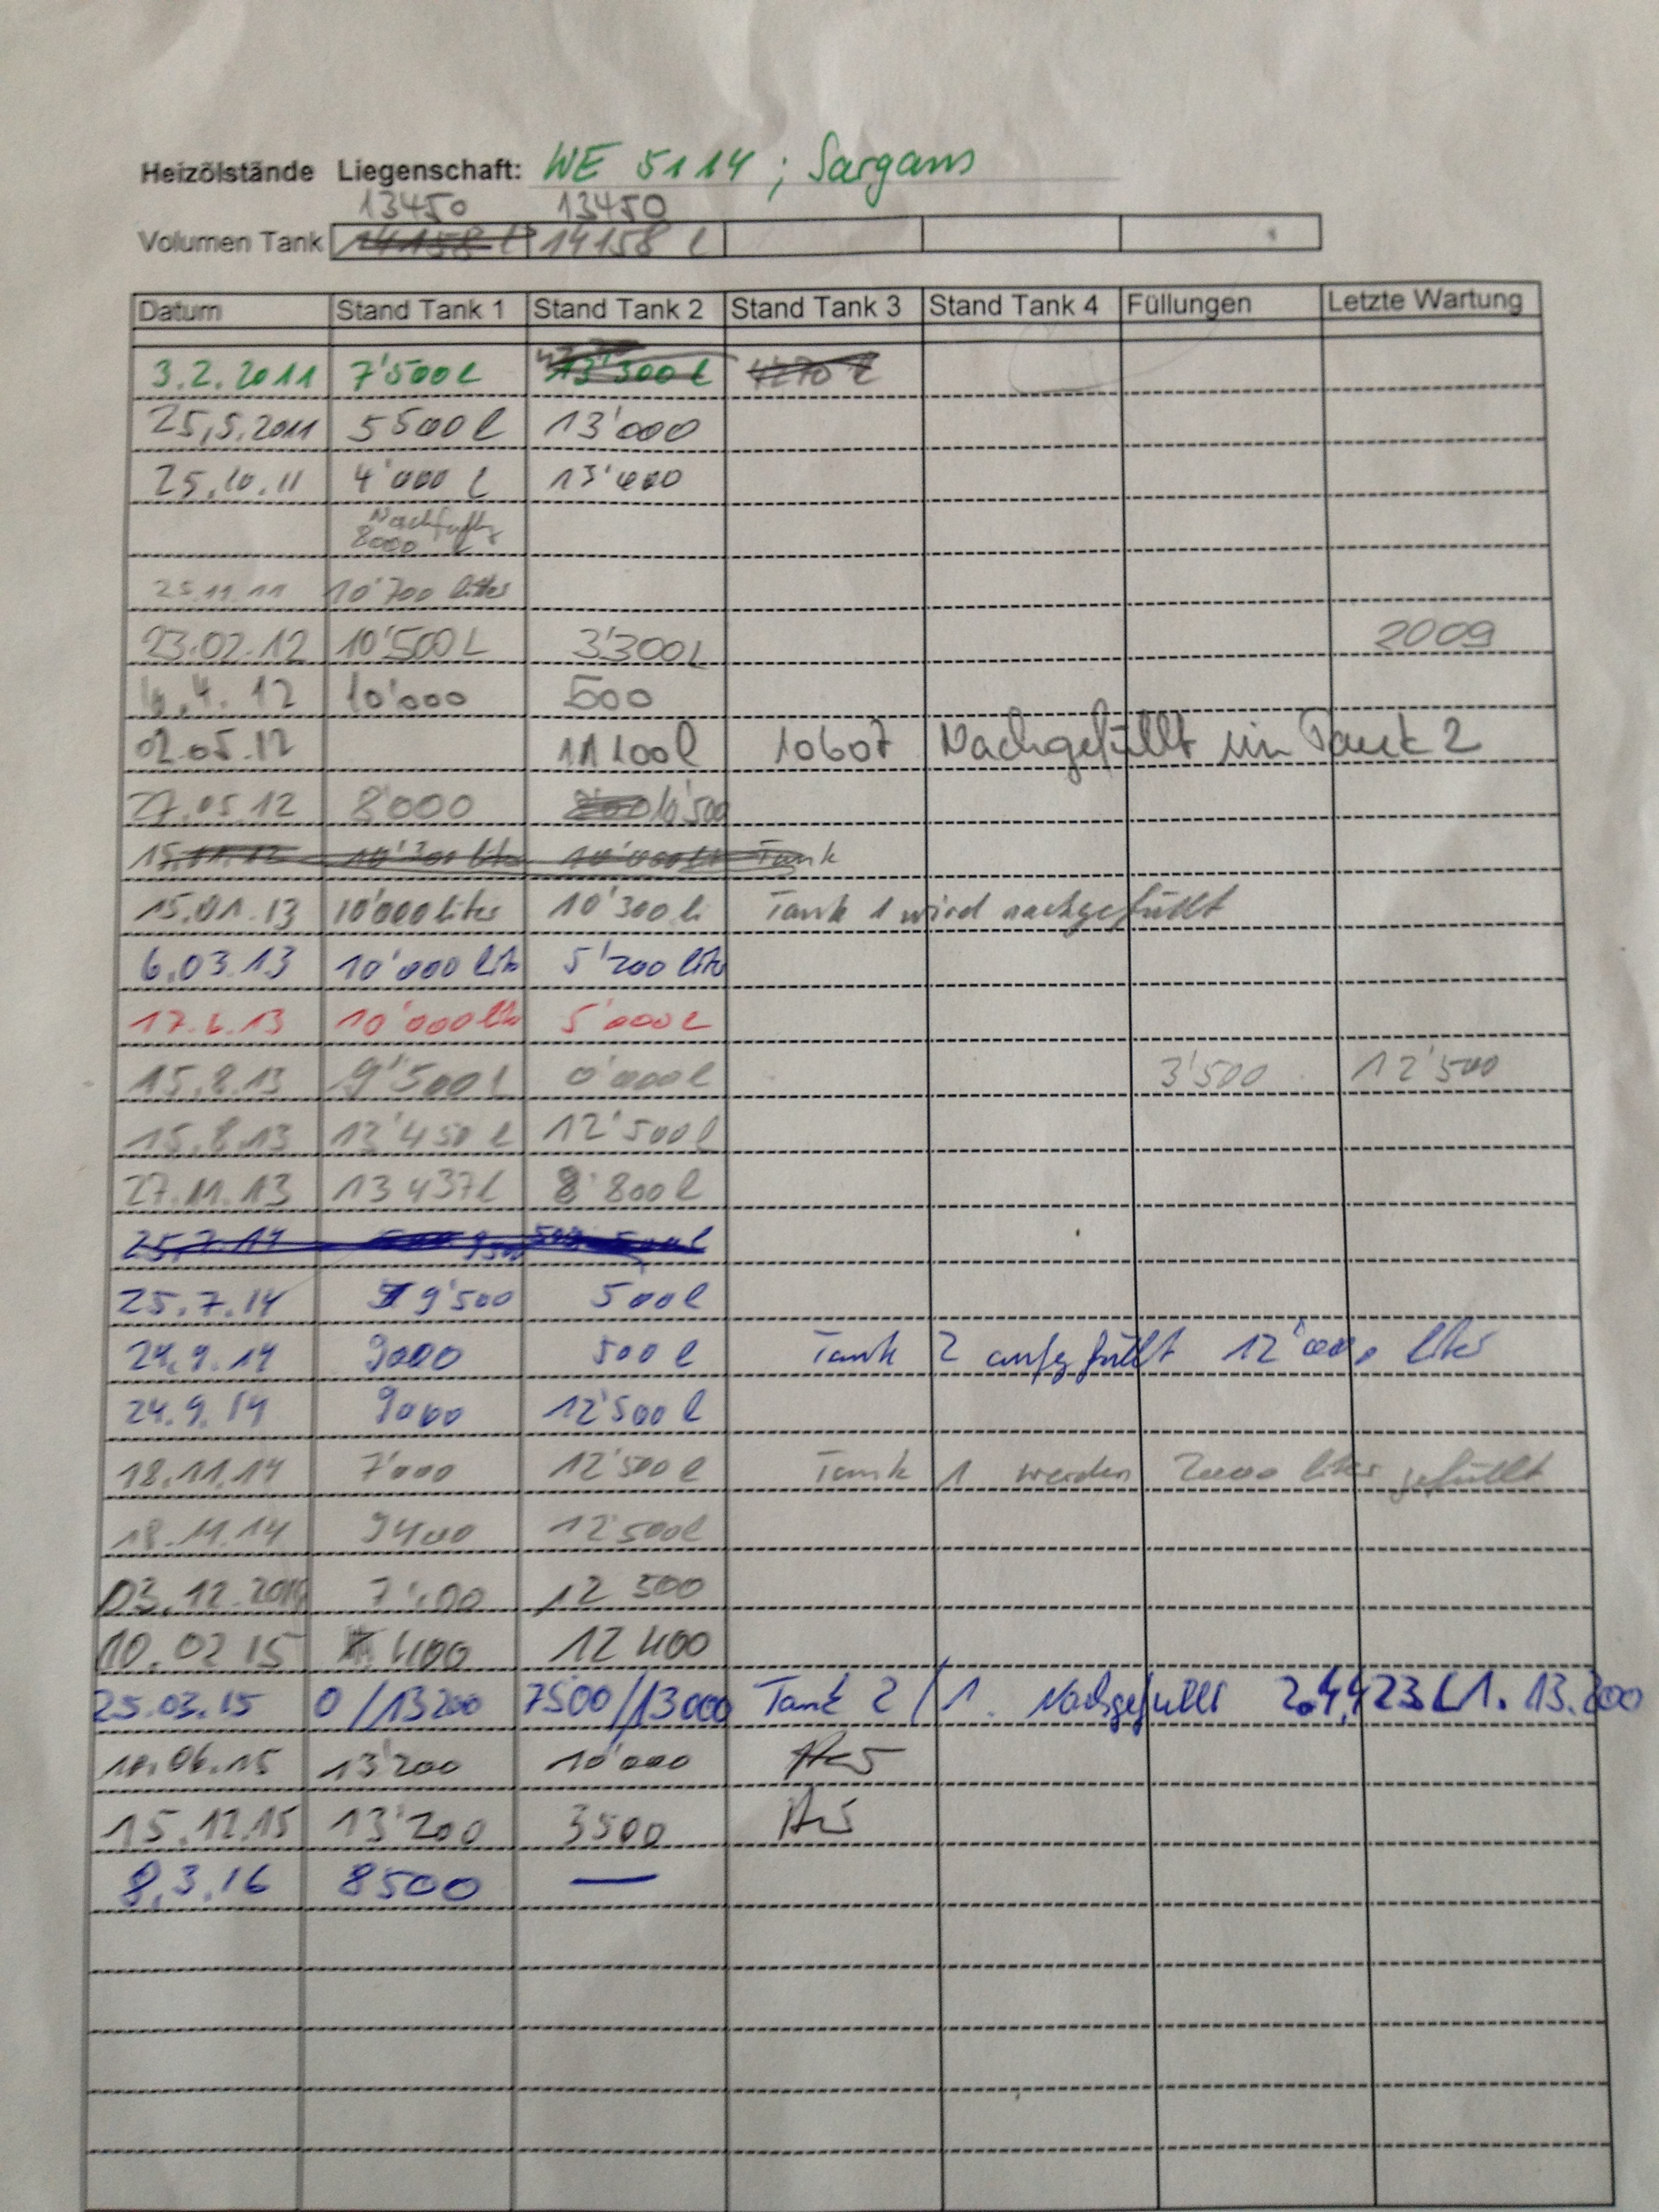 Heizölstände Liegenschaft: WE 5114 ; Sargans
13450 13450
Volumen Tank 14158 l 14158 l
Datum Stand Tank 1 Stand Tank 2 Stand Tank 3 Stand Tank 4 Füllungen Letzte Wartung
3.2.2011 7'500l 13'300l 4270 l
25.5.2011 5500l 13'000
25.10.11 4'000 l 13'000
8000
25.11.11 10'700 liter
23.02.12 10'500L 3'300L 2009
4.12 10'000 500
02.05.12 11100l 10607 Nachgefüllt in Tank 2
27.05.12 8'000 10'500
Tank
15.01.13 10'000 liter 10'300 li Tank 1 wird nachgefüllt
6.03.13 10'000 lit 5'200 lit
17.6.13 10'000 lit 5'000l
15.8.13 9'500l 0'000l 3'500 12'500
15.8.13 13'450 l 12'500l
27.11.13 13437l 8'800l
25.7.14
25.7.14 9'500 500l
24.9.14 9000 500 l Tank 2 aufgefüllt 12'000 liter
24.9.14 9000 12'500 l
18.11.14 7'000 12'500 l Tank 1 werden 2000 liter gefüllt
18.11.14 9400 12'500l
03.12.2014 12 500
10.02 15 400 12 400
25.03.15 0/13200 7500/13000 Tank 2/1. Nachgefüllt
06.15 13'200 10'000
15.12.15 13'200 3500
8.3.16 8500 —